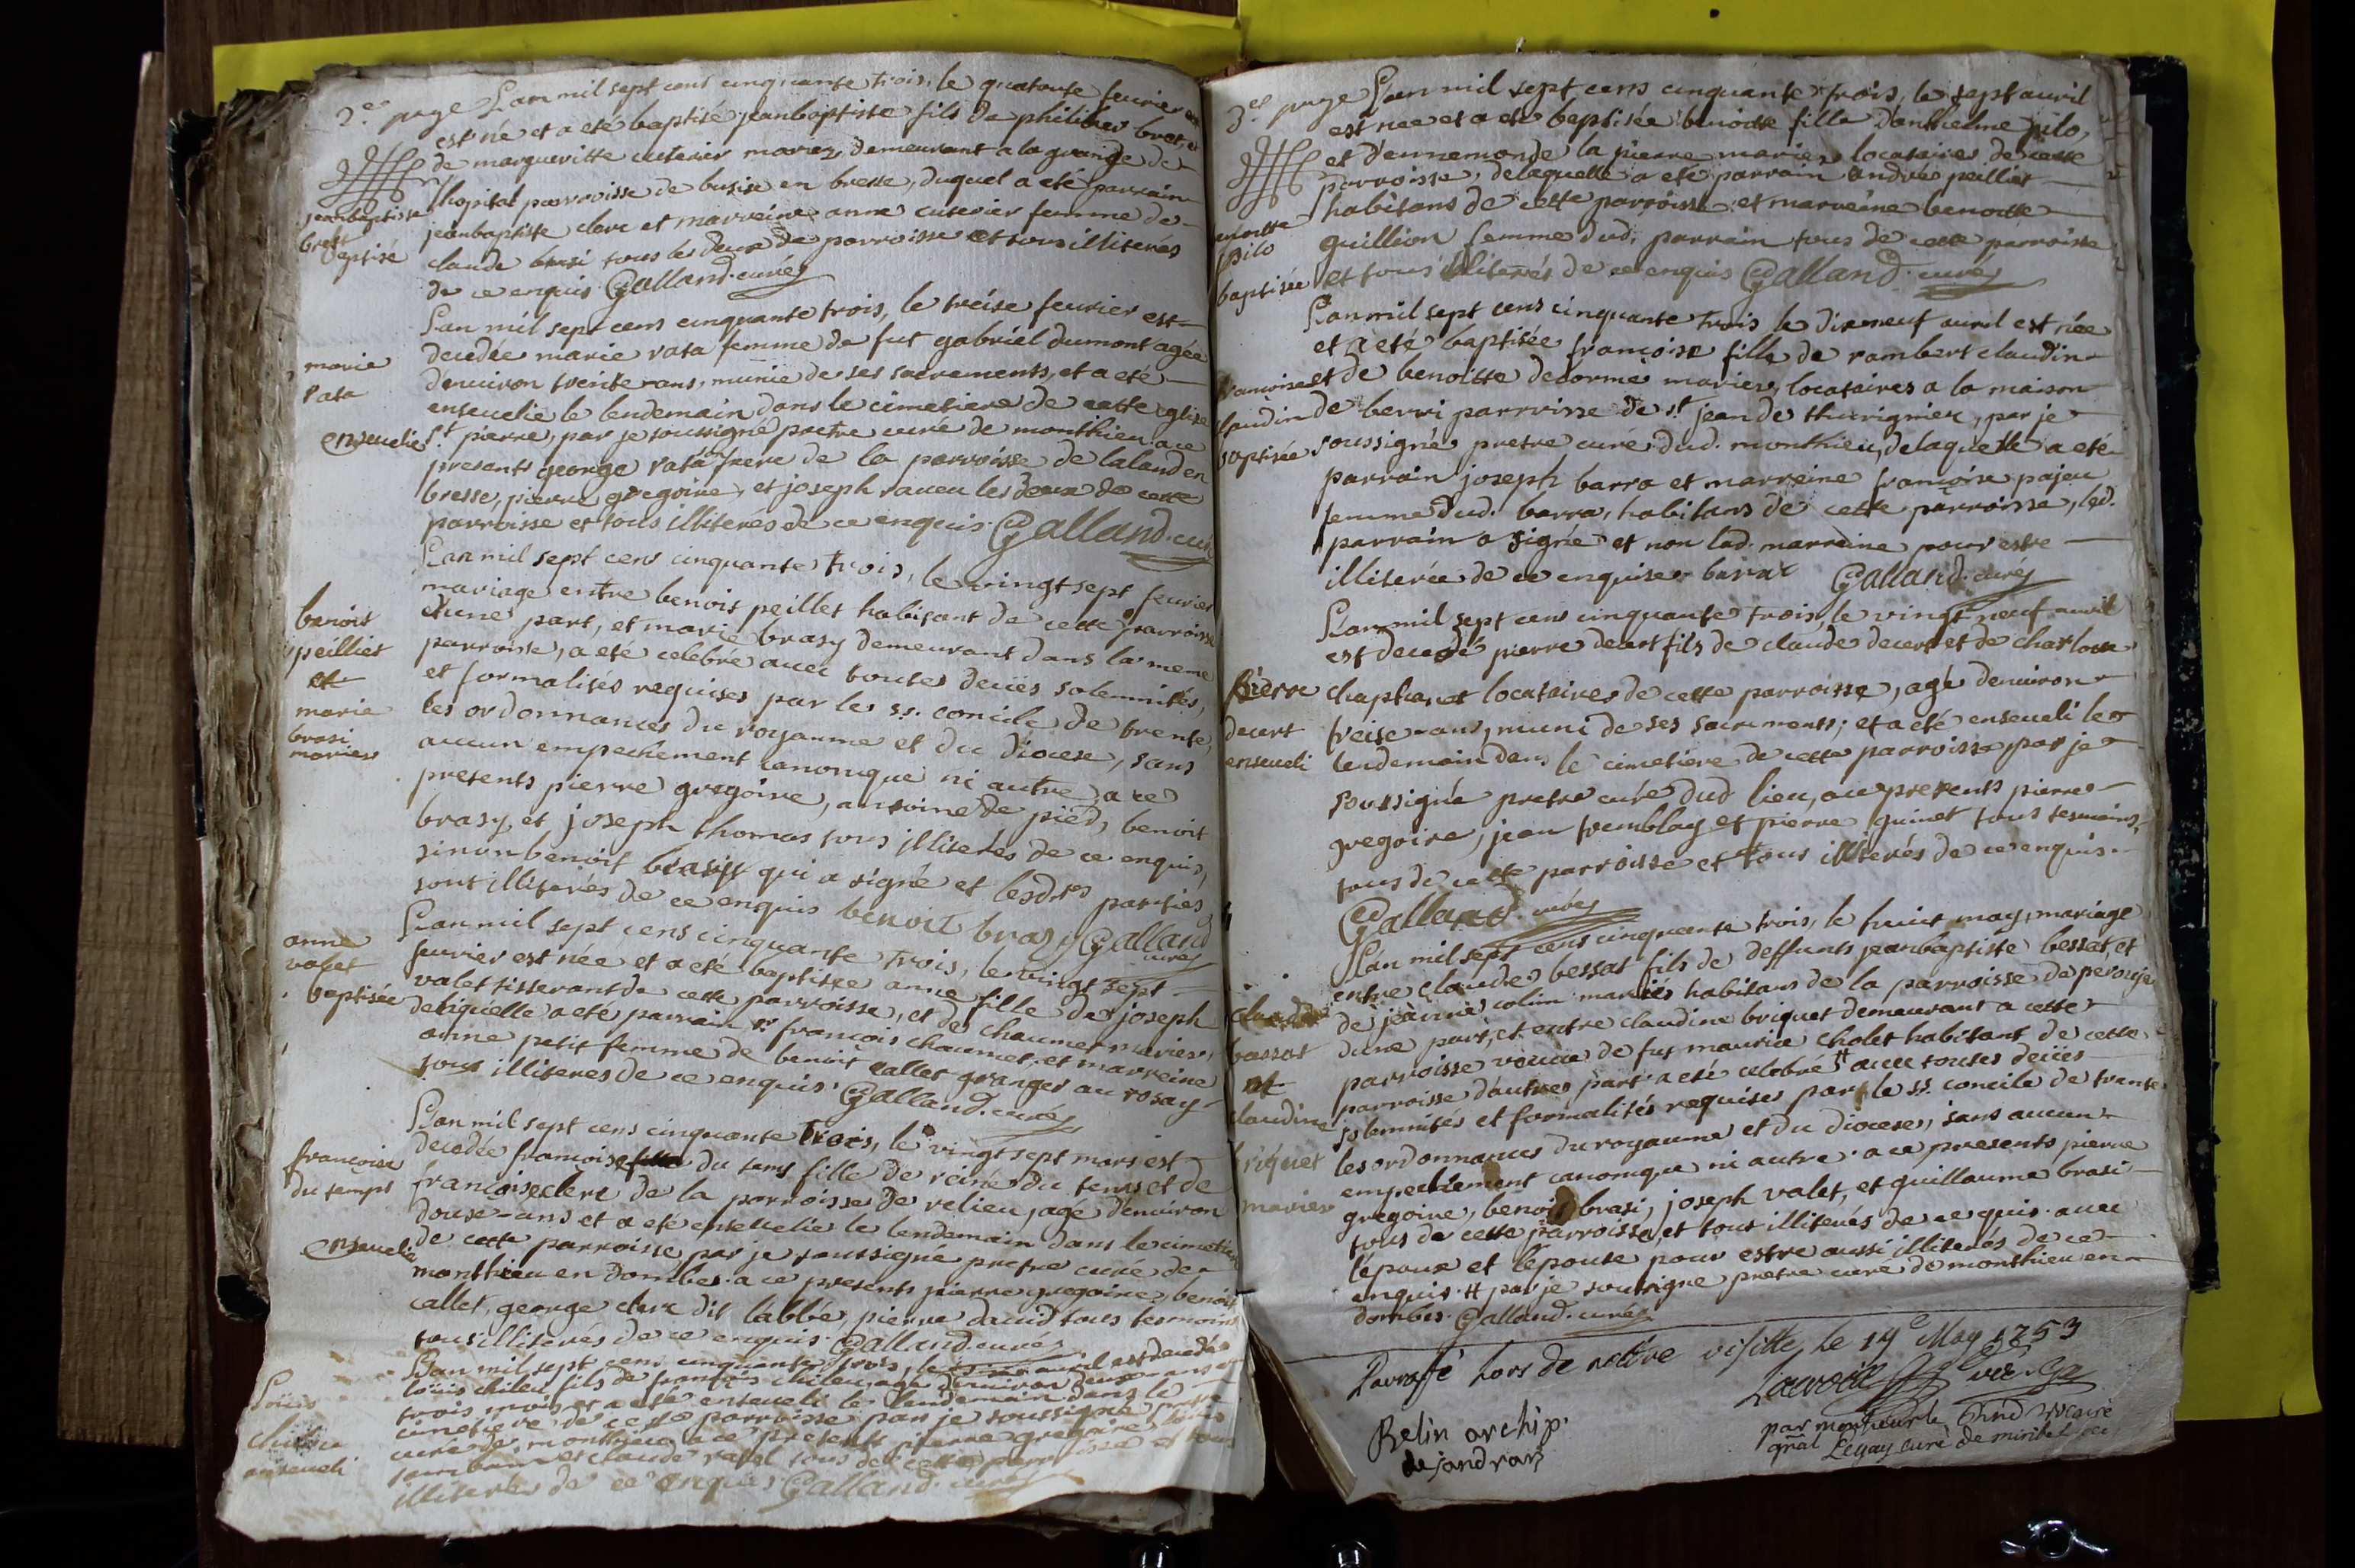 2.e page L'an mil sept cens cinquante trois, le quatorse feurier
est né et a eté baptisé jeanbaptiste fils de philibert bret, et
de margueritte cuterier mariez, demeurant a la grange de
l'hopital parroisse de busise en bresse, duquel a eté parrain
jeanbaptiste clerc et marreine anne cuterier femme de
claude brasi tous les deux de parroisse et tous illiterés
de ce enquis Galland curé
jeanbaptiste
bret
baptisé
L'an mil sept cens cinquante trois, le treise feurier est
decedée marie rata femme de fut gabriel dumont agée
d'enuiron trente ans, munie de ses sacrements, et a eté
enseuelie le lendemain dans le cimetiere de cette eglise
st. pierre, par je soussigné pretre curé de monthieu a ce
presents george rata frere de la parroisse de laland en
bresse, pierre gregoire, et joseph raueu les deux de cette
parroisse et tous illiterés de ce enquis Galland curé
marie
rata
enseuelie
L'an mil sept cens cinquante trois, le vingt sept feurier
mariage entre benois peillet habitant de cette parroisse
d'une part, et marie brasy demeurant dans la meme
parroisse, a eté celebré auec toutes deües solemnités,
et formalités requises par le ss. concile de trente,
les ordonnances du royaume et du diocese, sans
aucun empechement canonique ni autre, a ce
presents pierre gregoire, antoine de pied, benoit
brasy, et joseph thomas tous illiterés de ce enquis,
sinon benoit brasy qui a signé et lesdtes parties
sont illiterés de ce enquis benoit brasy Galland
curé
benoit
peilliet
et
marie
brasi
mariez
L'an mil sept cens cinquante trois, le vingt sept
feurier est née et a eté baptisée anne fille de joseph
valet tisserant de cette parroisse, et de chaumet mariez,
delaquelle a eté parrain sr. francois chaumet, et marreine
anne petit femme de benoit callet granger au rosay
tous illiterés de ce enquis Galland curé
anne
valet
baptisée
L'an mil sept cens cinquante trois, le vingt sept mars est
decedée francoise du tems fille de reiné du tems et de
francoise clerc de la parroisse de relieu, agé d'enuiron
douse ans et a eté enseuelie le lendemain dans le cimetiere
de cette parroisse par je soussigné pretre curé de
monthieu en dombes a ce presents pierre gregoire, benoit
callet, george clerc dit l'abbé, pierre dauid tous temoins
tous illiterés de ce enquis Galland curé
francoise
du temps
enseuelie
L'an mil sept cens cinquante trois, le auril est decedé
loüis chileu fils de francois chileu, agé d'enuiron deux ans et
trois mois et a eté enseueli le lendemain dans le
cimetiere de cette parroisse par je soussigné pretre
curé de monthieu a ce presents pierre gregoire
et claude ravel tous de cette parroisse et tous
illiterés de ce enquis Galland curé
Loüis
chileu
enseueli
3.e page L'an mil sept cens cinquante trois, le sept auril
est née et a eté baptisée benoitte fille d'anthelme pilo,
et d'ennemonde la pierre mariez locataires de cette
parroisse, delaquelle a eté parrain andré peillet
habitans de cette parroisse et marreine benoitte
guillion femme dud. parrain tous de cette parroisse
et tous illiterés de ce enquis Galland curé
benoitte
pilo
baptisée
L'an mil sept cens cinquante trois le dixneuf auril est née
et a eté baptisée francoise fille de rambert claudin
et de benoitte decormé mariez, locataires a la maison
de berri parroisse de st. jean de thurignieu, par je
soussigné pretre curé dud. monthieu, delaquelle a eté
parrain joseph barra et marreine francoise pajeu
femme dud. barra, habitans de cette parroisse, led.
parrain a signé et non lad. marreine pour estre
illiterée de ce enquise barra Galland curé
francoise
claudin
baptisée
L'an mil sept cens cinquante trois, le vingt neuf auril
est decedé pierre decert fils de claude decert et de charlotte
chaphanet locataires de cette parroisse, agé d'enuiron
treise ans, muni de ses sacrements, et a eté enseueli le
lendemain dans le cimetiere de cette parroisse par je
soussigné pretre curé dud lieu, a ce presents pierre
gregoire, jean tremblay et pierre guinet tous temoins,
tous de cette parroisse et tous illiterés de ce enquis
Galland curé
Pierre
decert
enseueli
L'an mil sept cens cinquante trois, le huict may, mariage
entre claude bessat fils de deffunts jeanbaptiste bessat, et
de jeanne colin mariés habitans de la parroisse de perouge
d'une part, et entre claudine briquet demeurant a cette
parroisse veuue de fut maurice cholet habitant de cette
parroisse d'autre, part a eté celebré # auec toutes deües
solemnités et formalités requises par le ss. concile de trente
les ordonnances du royaume et du diocese, sans aucun
empechement canonique ni autre. a ce presents pierre
gregoire, benoit brasi, joseph valet, et guillaume brasi
tous de cette parroisse, et tous illiterés de ce quis auec
l'epoux et l'epouse pour estre aussi illiterés de ce
enquis # par je soussigné pretre curé de monthieu en
dombes Galland curé
claude
bassat
et
claudine
briquet
mariez
Parraffé hors de notre visitte, le 14e May 1753
Lacroix vic. g.
Relin archip.
de sandrans
par monsieur le Grand vicaire
gnal Leguay curé de miribel